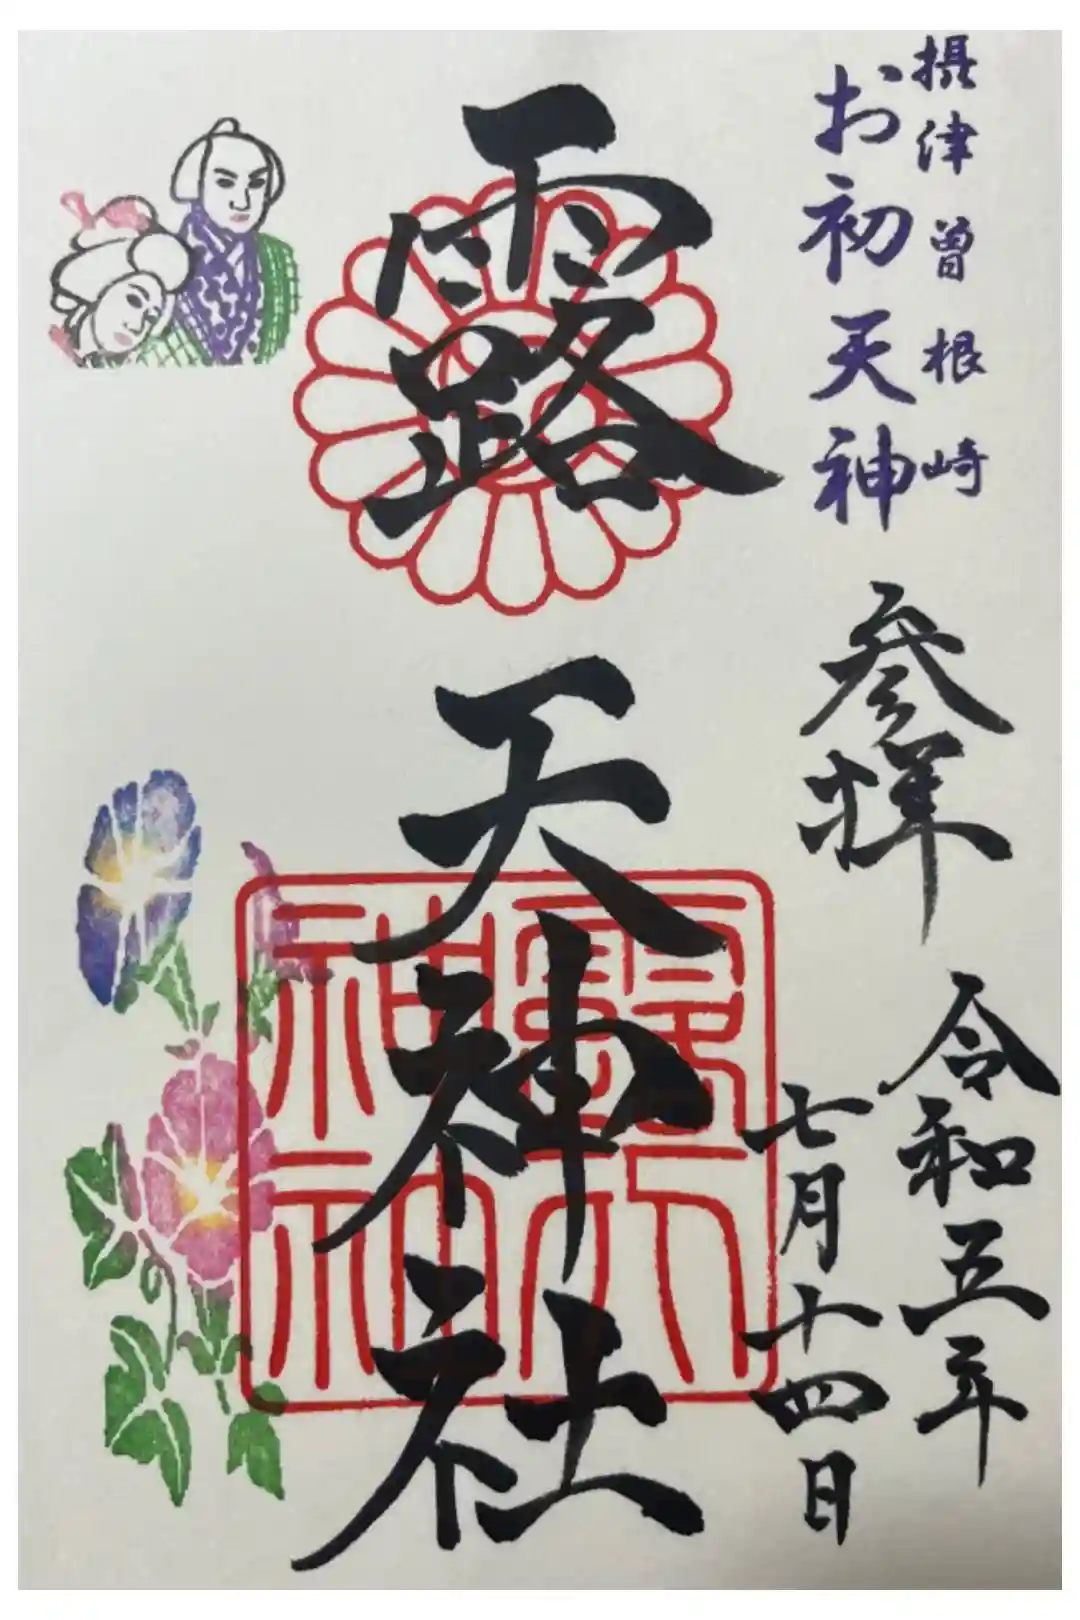 摂津曽根崎
お初天神
参拝
令和五年
七月十四日
露天神社